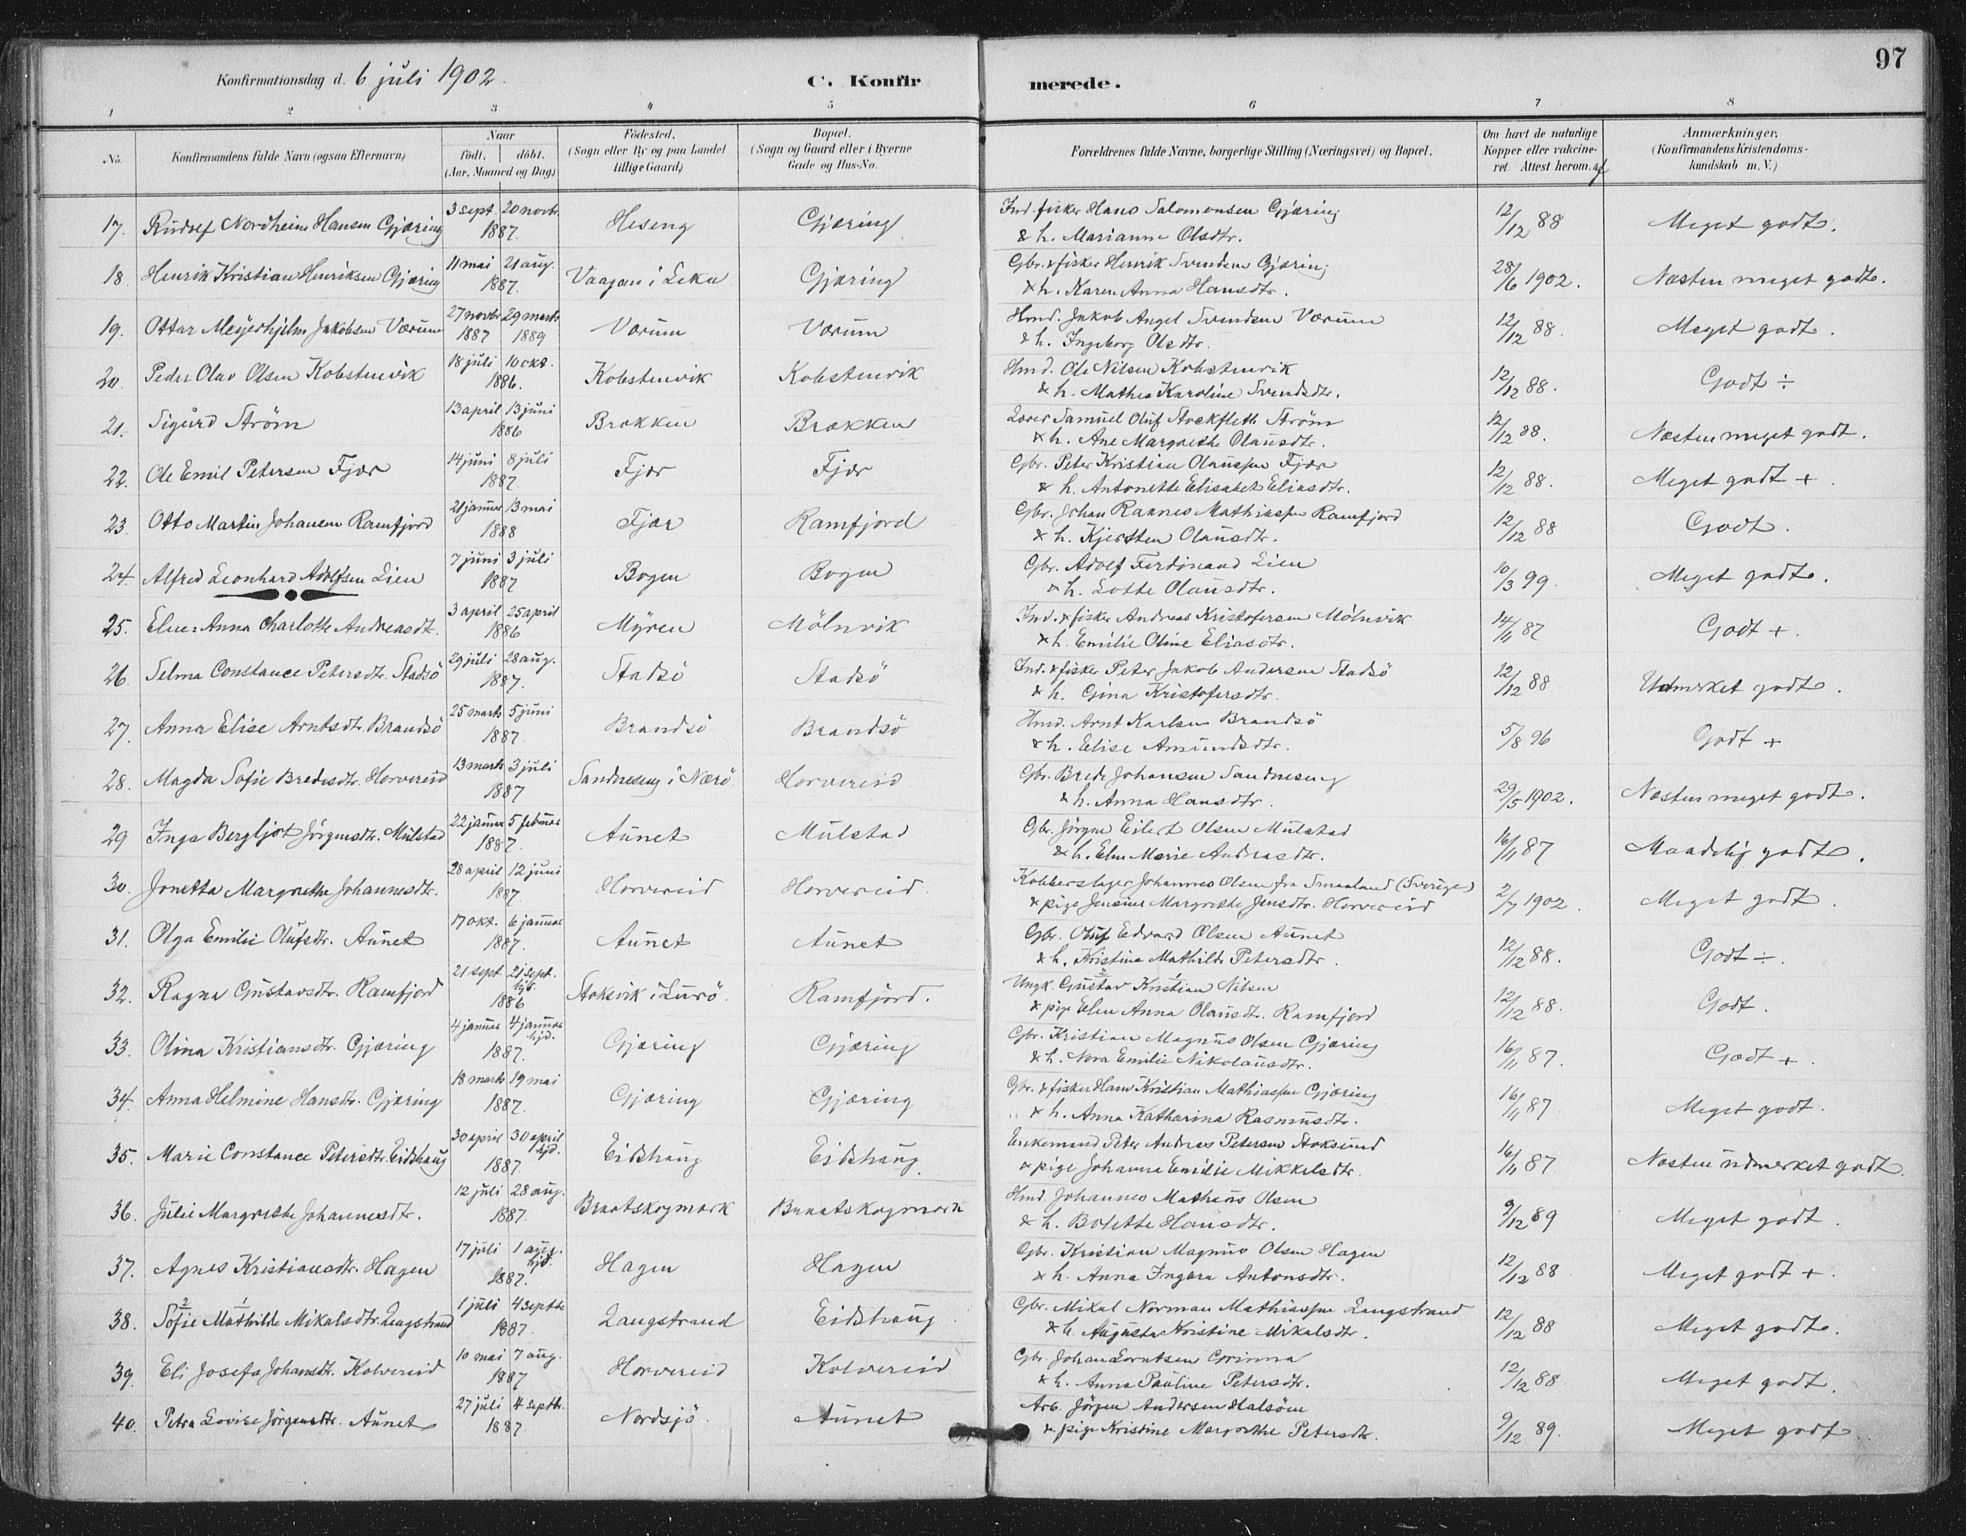 97
Konfirmationsdag d. 6 juli 1902.
C. Konfirmerede.
1 2 3 4 5 6 7 8
No. Konfirmandens fulde Navn (ogsaa Efternavn) Naar født. døbt. (Aar, Maaned og Dag) Födested. (Sogn eller By og paa Landet tillige Gaard) Bopæl. (Sogn og Gaard eller i Byerne Gade og Hus-No. Forældrenes fulde Navne, borgerlige Stilling (Næringsvei) og Bopæl. Om havt de naturlige Kopper eller vakcineret. Attest herom. af Anmærkninger. (Konfirmandens Kristendomskundskab m. V.)
17. Rudolf Nordheim Hansen Gjæring 3 sept. 20 novbr. 1887. Heseng Gjæring Ind. fisker Hans Salomonsen Gjæring & h. Marianne Olsdtr. 12/12 88 Meget godt.
18. Henrik Kristian Henriksen Gjæring 11 mai 21 aug. 1887. Vaagan i Leka Gjæring Gbr. & fisker Henrik Svendsen Gjæring & h. Karen Anna Hansdtr. 28/6 1902. Næsten meget godt.
19. Ottar Meyerhjelm Jakobsen Værum 27 novbr 1887 29 marts 1889 Værum Værum Hmd. Jakob Angel Svendsen Værum & h. Ingeborg Olsdtr. 12/12 88. Meget godt.
20. Peder Olav Olsen Kobstenvik 18 juli 10 okt. 1886. Kobstenvik Kobstenvik Hmd. Ole Nilsen Kobstenvik & h. Mathea Karoline Svendsdtr. 12/12 88. Godt ÷
21. Sigurd Strøm 13 april 13 juni 1886 Brakken Brækken Lærer Samuel Oluf Stockfleth Strøm & h. Ane Margrethe Olausdtr. 12/12 88. Næsten meget godt.
22. Ole Emil Petersen Fjær 14 juni 8 juli 1887. Fjær Fjær Gbr. Peter Kristian Olaussen Fjær & h. Antonette Elisabet Eliasdtr. 12/12 88. Meget godt +.
23. Otto Martin Johansen Ramfjord 21 januar 13 mai 1888 Fjær Ramfjord Gbr. Johan Raanes Mathiassen Ramfjord & h. Kjersten Olausdtr. 12/12 88 Godt.
24. Alfred Leonhard Adolfsen Lien 7 juni 3 juli 1887 Bogen Bogen Gbr. Adolf Ferdinand Lien & h. Lotte Olausdtr. 10/3 99. Meget godt.
25. Elen Anna Charlotte Andreasdt. 3 april 25 april 1886 Myren Mölnvik Ind. & fisker Andreas Kristofersen Mölnvik & h. Emilie Oline Eliasdtr. 14/11 87 Godt +.
26. Selma Constance Petersdtr. Stadsö 29 juli 28 aug. 1887. Stadsö Stadsö Ind. & fisker Peter Jakob Andersen Stadsö & h. Gina Kristofersdtr. 12/12 88 Udmerket godt.
27. Anna Elise Arntsdtr. Brandsö 25 marts 5 juni 1887. Brandsö Brandsö Hmd. Arnt Karlsen Brandsö & h. Elise Amundsdtr. 5/8 96 Godt +
28. Magda Sofie Bredesdtr. Horvereid 13 marts 3 juli 1887 Sandneseng i Nærö Horvereid Gbr. Brede Johansen Sandneseng & h. Anna Hansdtr. 29/5 1902. Næsten meget godt.
29 Inga Bergljot Jörgensdtr. Mulstad 22 januar 5 februar 1887. Aunet Mulstad Gbr. Jörgen Eilert Olsen Mulstad & h. Elen Marie Andreasdtr. 16/11 87 Maadelig godt.
30. Jonetta Margrethe Johannesdtr. 28 april 12 juni 1887. Horvereid Horvereid. Kobberslager Johannes Olsen fra Smaaland (Sverige) & pige Jensine Margrethe Jensdtr. Horvereid 2/7 1902. Meget godt.
31. Olga Emilie Olufsdtr. Aunet 17 okt. 6 januar 1887. Aunet Aunet Gbr. Oluf Edvard Olsen Aunet & h. Kristina Mathilde Petersdtr. 12/12 88. Godt ÷.
32. Ragna Gustavsdtr. Ramfjord 21 sept. 21 sept. hjd. 1886 Stoksvik i Lurö. Ramfjord. Ungk. Gustav Kristian Nilsen & pige Elen Anna Olausdtr. Ramfjord 12/12 88. Godt.
33. Olina Kristiansdtr. Gjæring 4 januar 4 januar hjd. 1887. Gjæring Gjæring Gbr. Kristian Magnus Olsen Gjæring & h. Nora Emilie Nikolausdtr. 16/11 87. Godt +.
34. Anna Helmine Hansdtr. Gjæring 18 marts 19 mai 1887. Gjæring Gjæring Gbr. & fisker Hans Kristian Mathiassen Gjæring & h. Anna Katharina Rasmusdtr. 16/11 87 Meget godt.
35. Marie Constance Petersdtr. Eidshaug 30 april 30 april hjd. 1887. Eidshaug Eidshaug Enkemand Peter Andreas Petersen Stoksund & pige Johanna Emilie Mikkelsdtr. 16/11 87 Næsten udmerket godt.
36. Julie Margrethe Johannesdtr. 12 juli 28 aug. 1887. Braatskogmark Braatskogmark Hmd. Johannes Mathæus Olsen & h. Bolette Hansdtr. 9/12 89 Meget godt.
37. Agnes Kristiansdtr. Hagen 17 juli 1 aug. hjd. 1887. Hagen Hagen Gbr. Kristian Magnus Olsen Hagen & h. Anna Ingera Antonsdtr. 12/12 88 Meget godt +.
38. Sofie Mathilde Mikalsdtr. Langstrand 1 juli 4 septbr 1887. Langstrand Eidshaug Gbr. Mikal Norman Mathiassen Langstrand & h. Augusta Kristine Mikalsdtr. 12/12 88 Meget godt.
39. Eli Josefa Johansdtr. Kolvereid 10 mai 7 aug. 1887 Horvereid Kolvereid Gbr Johan Lorntsen Grinna & h. Anna Pauline Petersdtr. 12/12 88. Meget godt.
40. Petra Lovise Jörgensdtr. Aunet 27 juli 4 septbr. 1887. Nordsjö. Aunet Arb. Jörgen Andersen Halsöen & pige Kristine Margrethe Petersdtr. 9/12 89. Meget godt